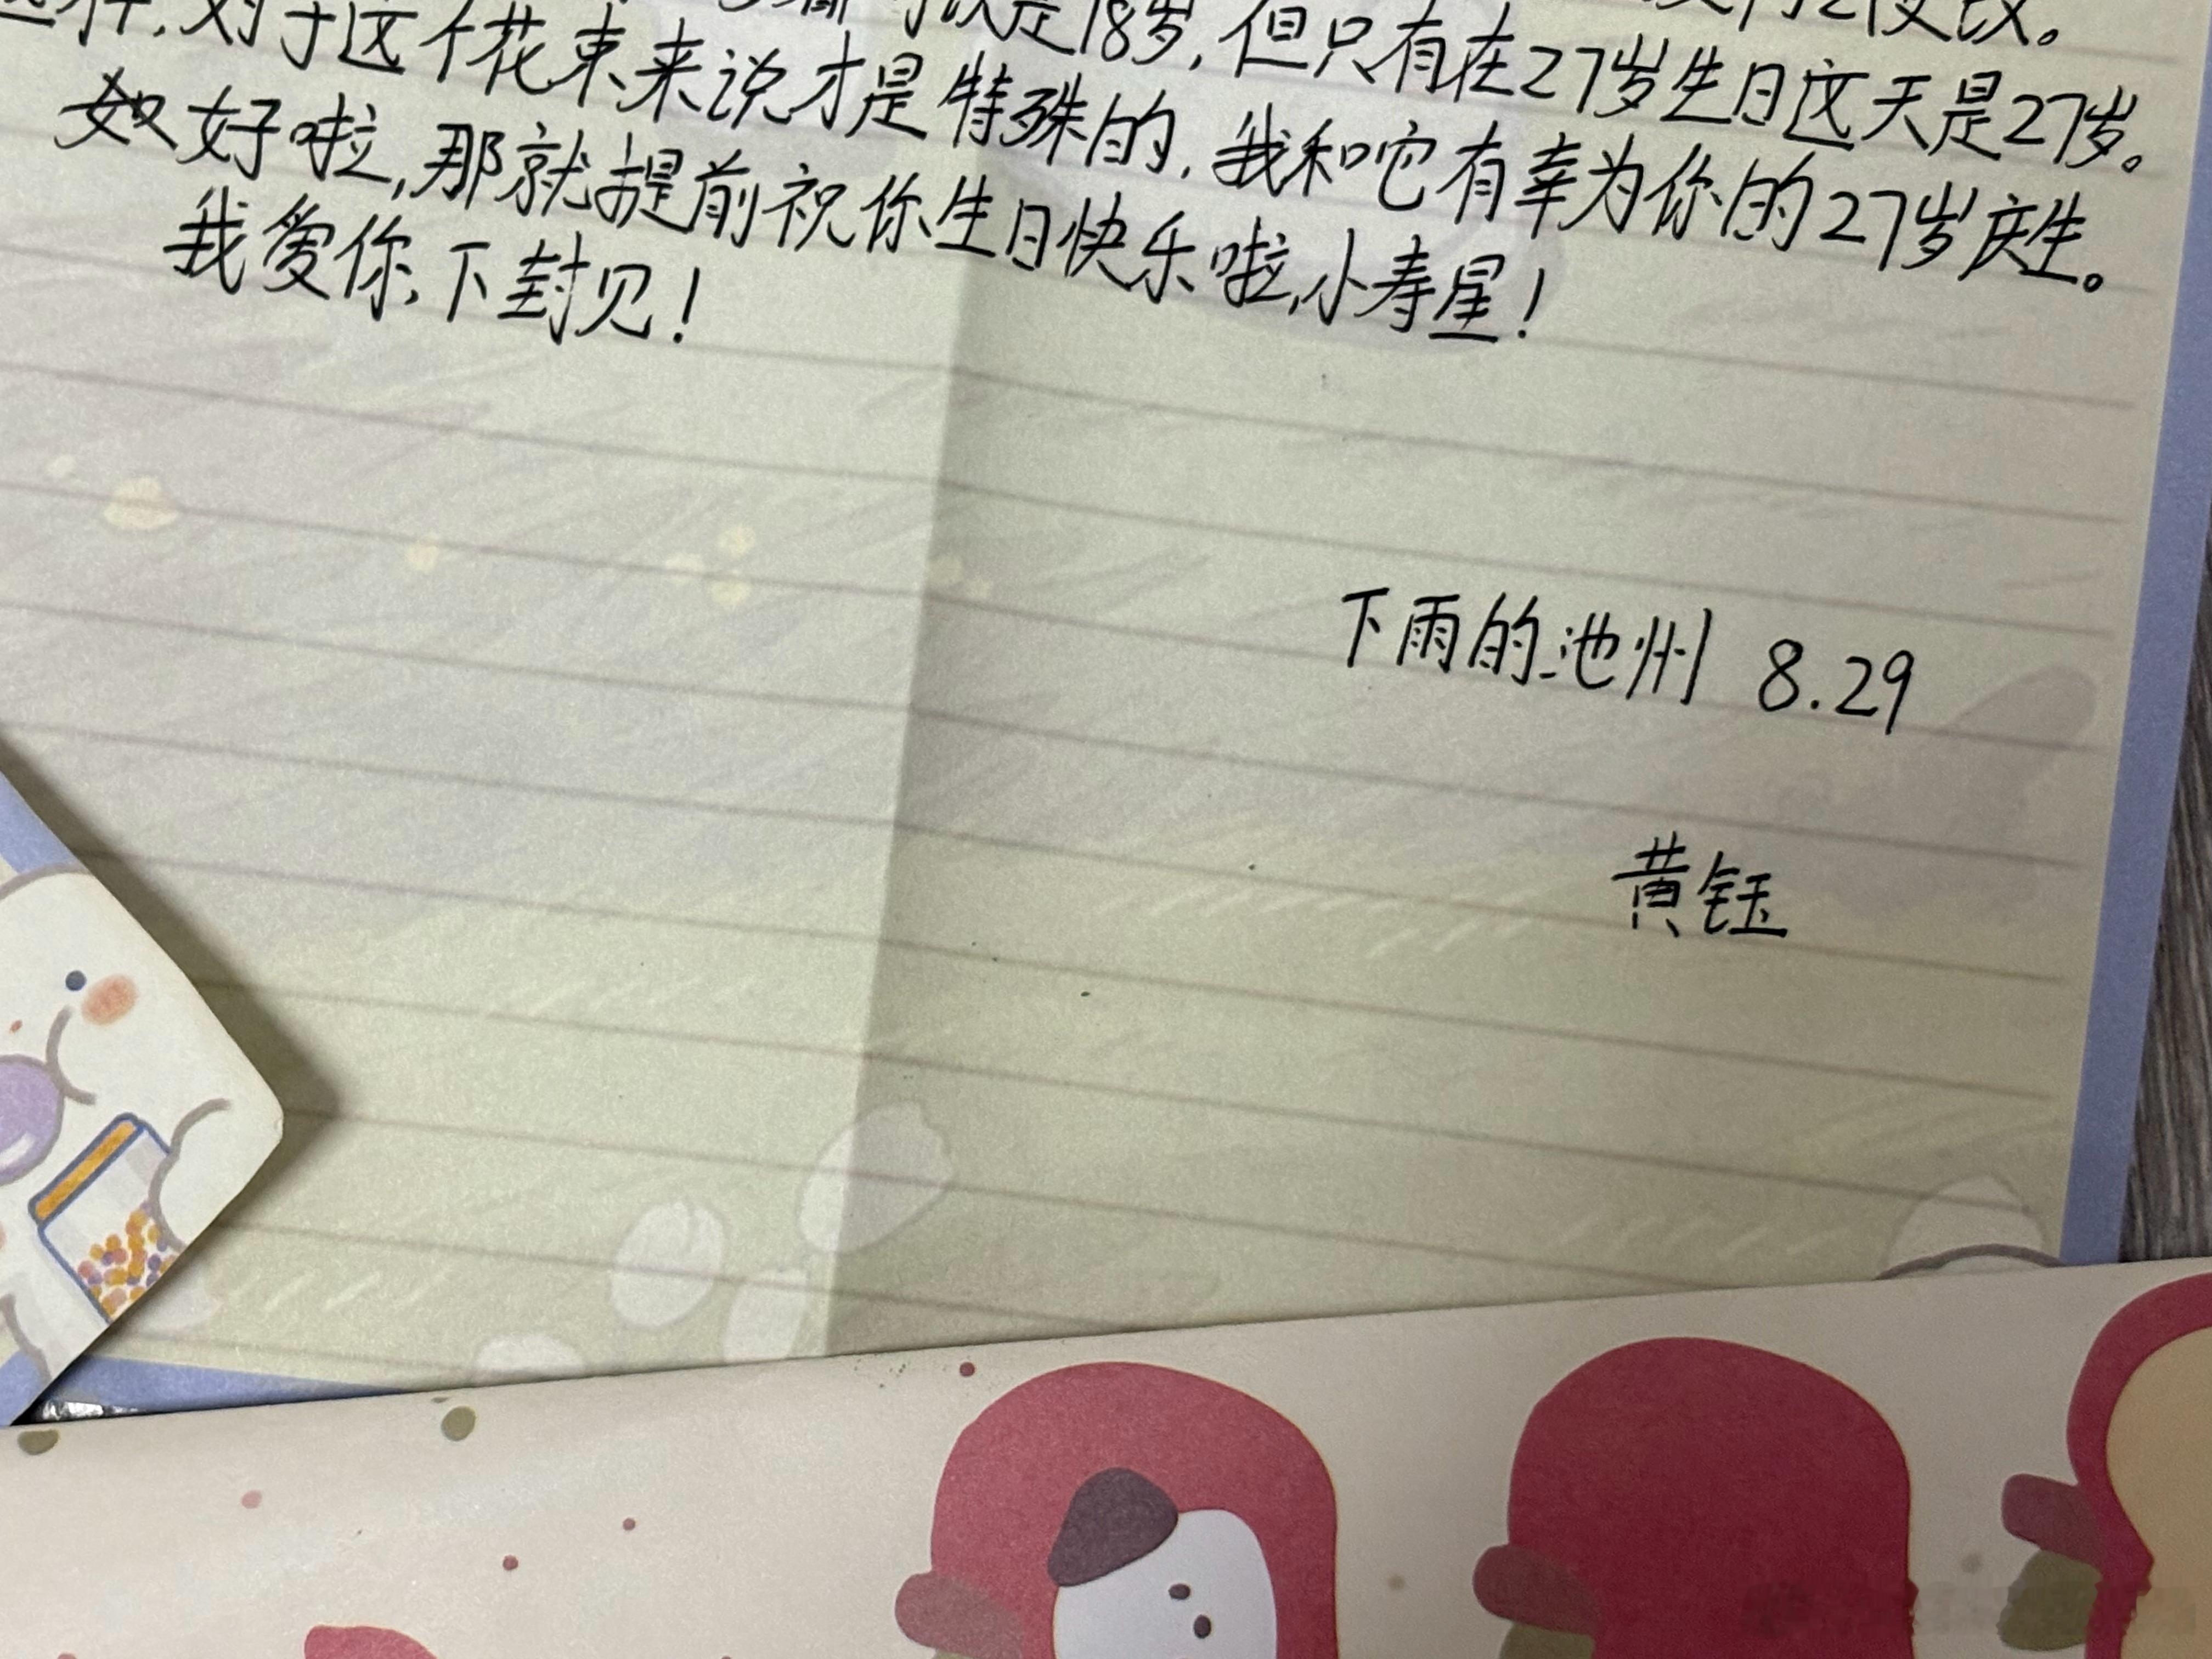 是18岁，但只有在27岁生日这天是27岁。
对于这个花束来说才是特殊的，我和它有幸为你的27岁庆生。
好啦，那就提前祝你生日快乐啦，小寿星！
我爱你，下封见！
下雨的池州 8.29
黄钰